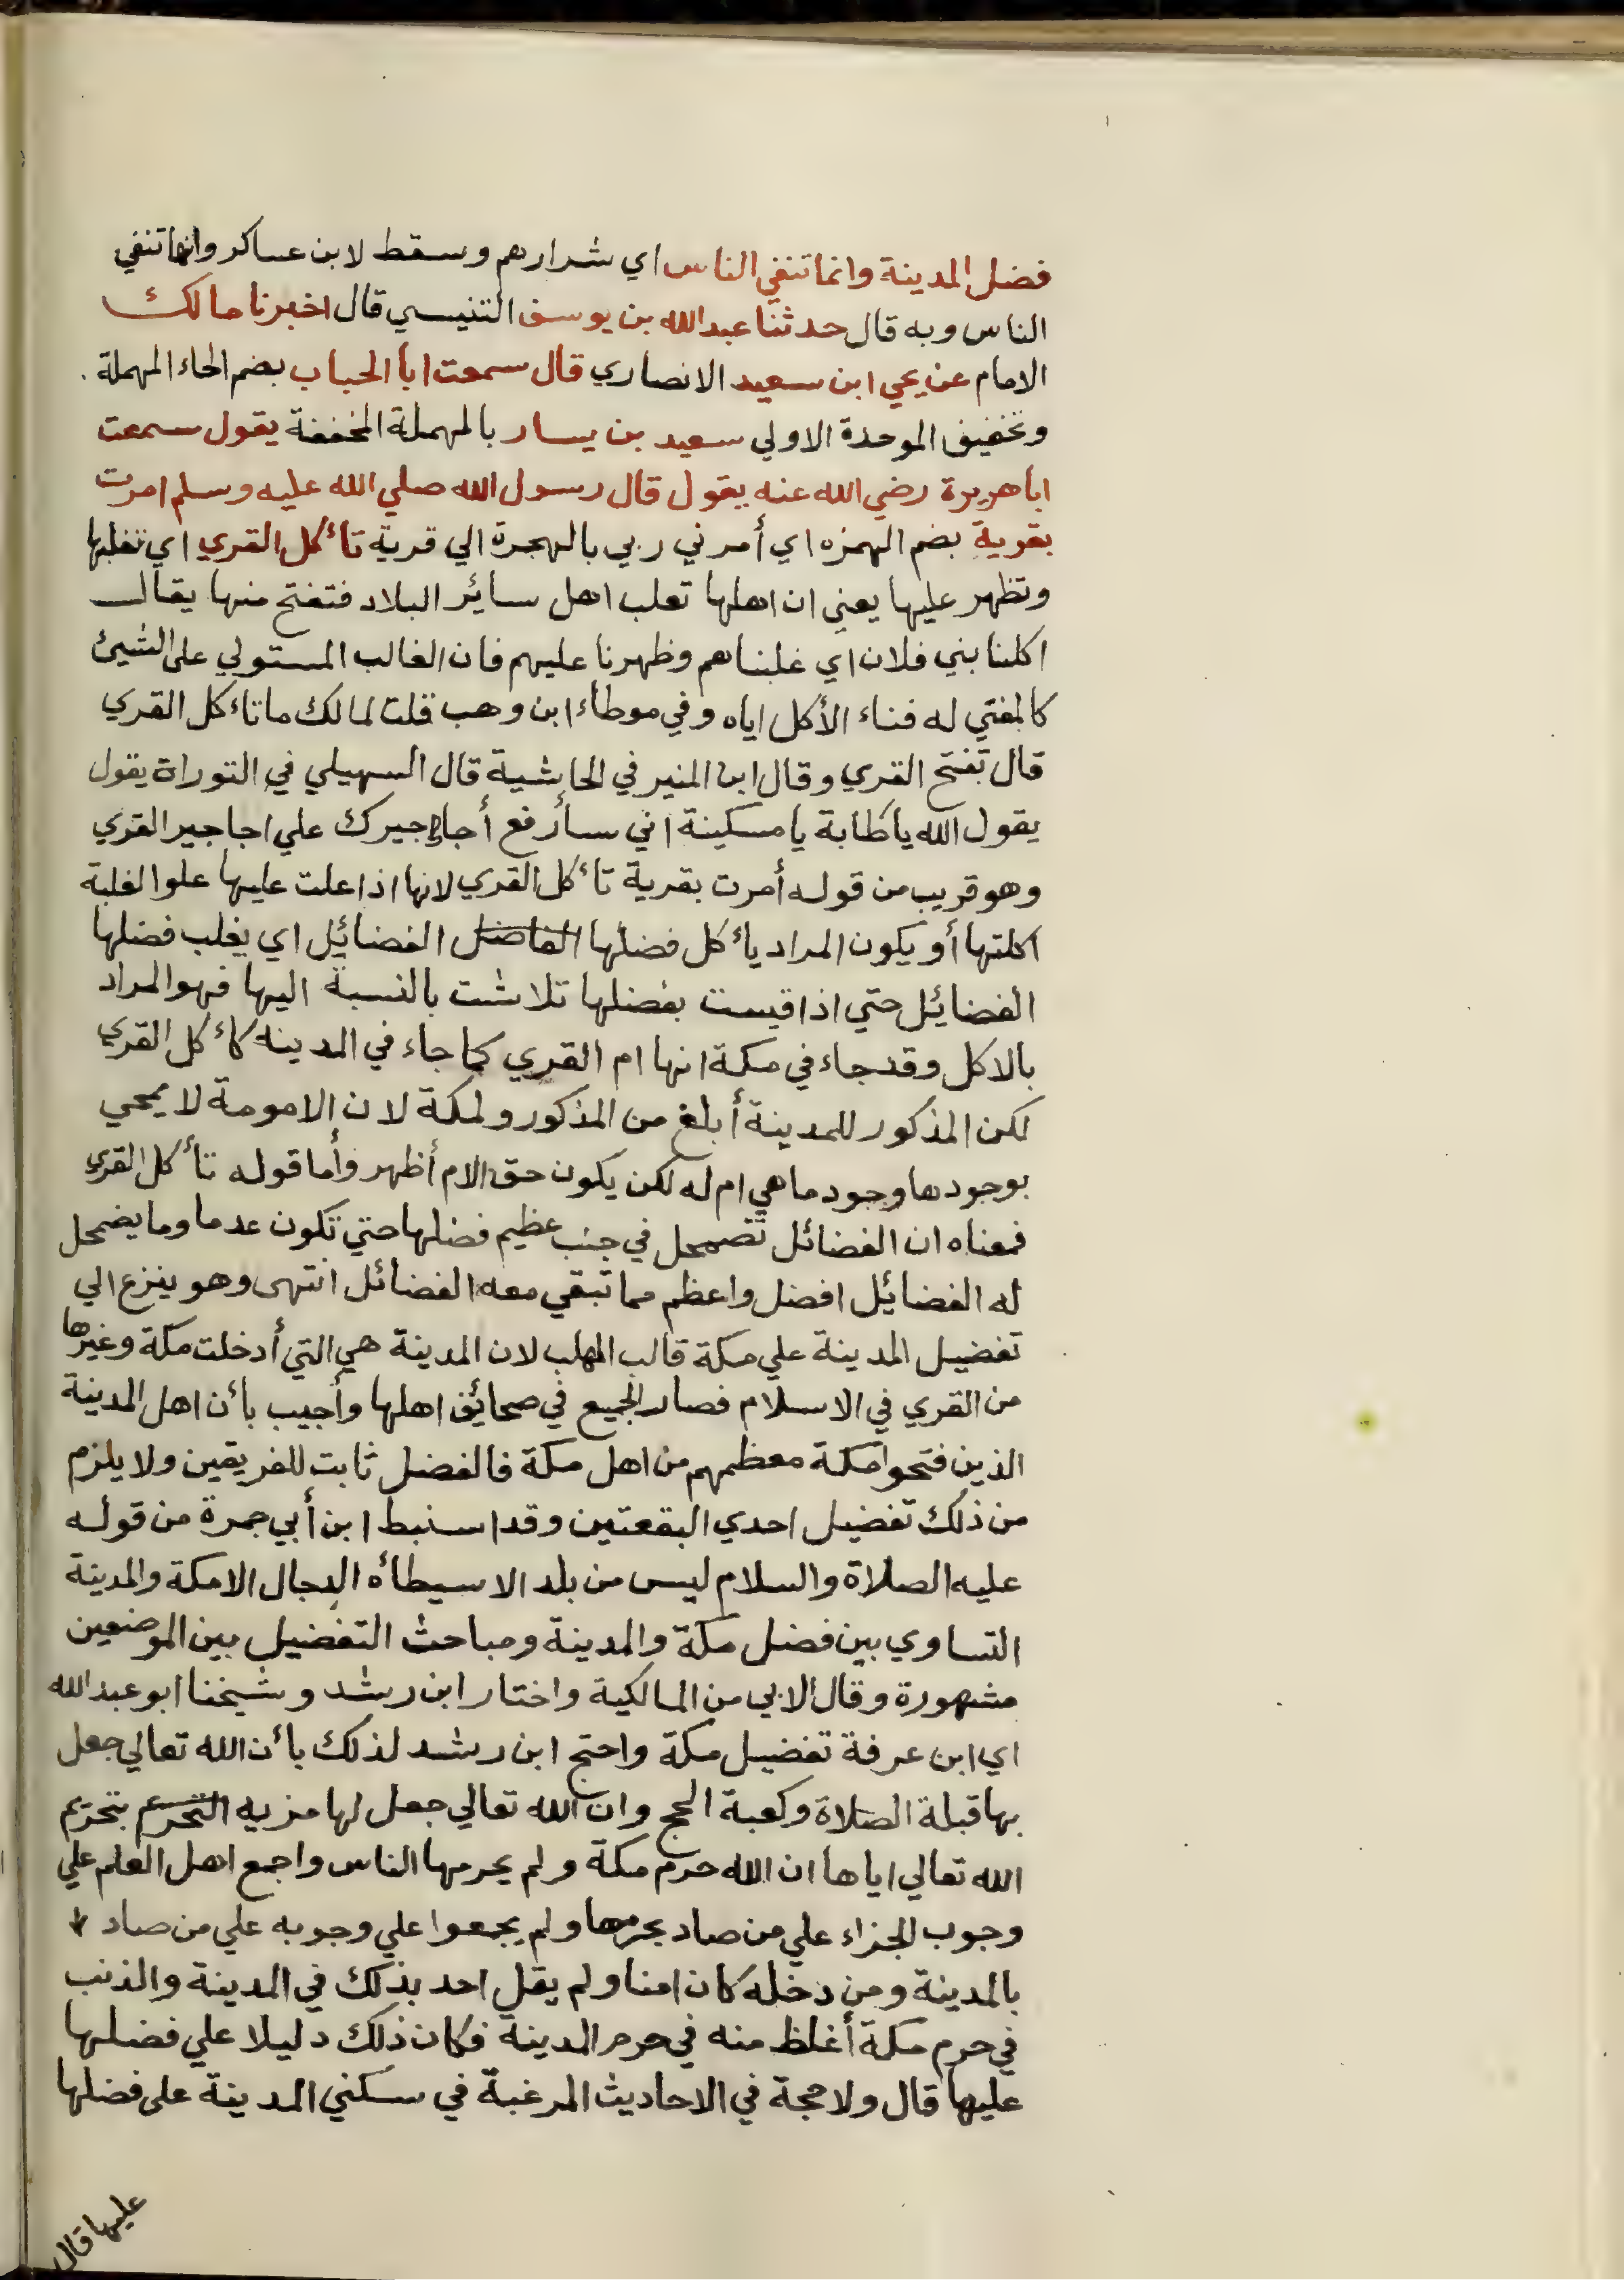 فضل المدينة وانما تنفي الناس اي شرارهم وسقط لابن عساكر وانها تنفي
الناس وبه قال حدثنا عبدالله بن يوسف التنيسي قال اخبرنا مالك
الامام عن يحي ابن سعيد الانصاري قال سمعت ابا الحباب بضم الحاء المهملة
وتخفيف الموحدة الاولي سعيد بن يسار بالمهملة المخففة يقول سمعت
ابا هريرة رضي الله عنه يقول قال رسول الله صلي الله عليه وسلم امرت
بقرية بضم الهمزه اي أمرني ربي بالهجرة الي قرية تأكل القري اي تغلبها
وتظهر عليها يعني ان اهلها تعلب اهل سائر البلاد فتفتح منها يقال
اكلنا بني فلان اي غلبناهم وظهرنا عليهم فان الغالب المستولي على الشيئ
كالمفني له فناء الأكل اياه وفي موطاء ابن وهب قلت لمالك ما تاءكل القري
قال تفتح القري وقال ابن المنير في الحاشية قال السهيلي في التوراة يقول
يقول الله يا طابة يا مسكينة اني سأرفع أجاجيرك علي اجاجير القري
وهو قريب من قوله أمرت بقرية تأكل القري لانها اذا علت عليها علوا لغلبة
اكلتها أو يكون المراد يأكل فضلها الفاضل الفضائل اي يغلب فضلها
الفضايل حتي اذا قيست بفضلها تلاشت بالنسبة اليها فهو المراد
بالاكل وقد جاء في مكة انها ام القري كما جاء في المدينه كأكل القري
لكن المذكور للمدينة أبلغ من المذكور ولمكة لان الامومة لا يمحي
بوجودها وجود ما هي ام له لكن يكون حق الام أظهر وأما قوله تأكل القري
فمعناه ان الفضائل تضمحل في جنب عظيم فضلها حتي تكون عدما وما يضمحل
له الفضايل افضل واعظم مما تبقي معه الفضائل انتهى وهو ينزع الي
تفضيل المدينة علي مكة قالب المهلب لان المدينة هي التي أدخلت مكة وغيرها
من القري في الاسلام فصار الجميع في صحائف اهلها وأجيب بأن اهل المدينة
الذين فتحوا مكة معظمهم من اهل مكة فالفضل ثابت للفريقين ولا يلزم
من ذلك تفضيل احدي البقعتين وقد استنبط ابن أبي جمرة من قوله
عليه الصلاة والسلام ليس من بلد الا سيطأه الدجال الا مكة والمدينة
التساوي بين فضل مكة والمدينة ومباحث التفضيل بين الموضعين
مشهورة وقال الابي من المالكية واختار ابن رشد وشيخنا ابو عبدالله
اي ابن عرفة تفضيل مكة واحتج ابن رشد لذلك بأن الله تعالي جعل
بها قبلة الصلاة وكعبة الحج وان الله تعالي جعل لها مزيه التحرم بتحريم
الله تعالي اياها ان الله حرم مكة ولم يحرمها الناس واجمع اهل العلم علي
وجوب الجزاء علي من صاد بحرمها ولم يجمعوا علي وجوبه علي من صاد
بالمدينة ومن دخله كان امنا ولم يقل احد بذلك في المدينة والذنب
في حرم مكة أغلظ منه في حرم المدينة فكان ذلك دليلا علي فضلها
عليها قال ولا حجة في الاحاديث المرغبة في سكني المدينة على فضلها
عليها قال